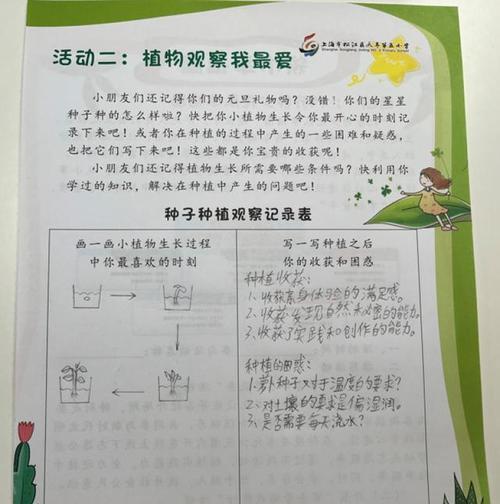 上海市松江区人乐第五小学
活动二：植物观察我最爱
小朋友们还记得你们的元旦礼物吗？没错！你们的星星
种子种的怎么样啦？快把你小植物生长令你最开心的时刻记
录下来吧！或者你在种植的过程中产生的一些困难和疑惑，
也把它们写下来吧！这些都是你宝贵的收获呢！
小朋友们还记得植物生长所需要哪些条件吗？快利用你
学过的知识，解决在种植中产生的问题吧！
种子种植观察记录表
画一画小植物生长过程
中你最喜欢的时刻
写一写种植之后
你的收获和困惑
种植收获：
1、收获亲身体验的满足感。
2、收获发现自然和秘密的能力。
3、收获了实践和创作的能力。
种植的困惑：
1、萝卜种子对于温度的要求？
2、对土壤的要求是偏湿润。
3、是否需要每天浇水？